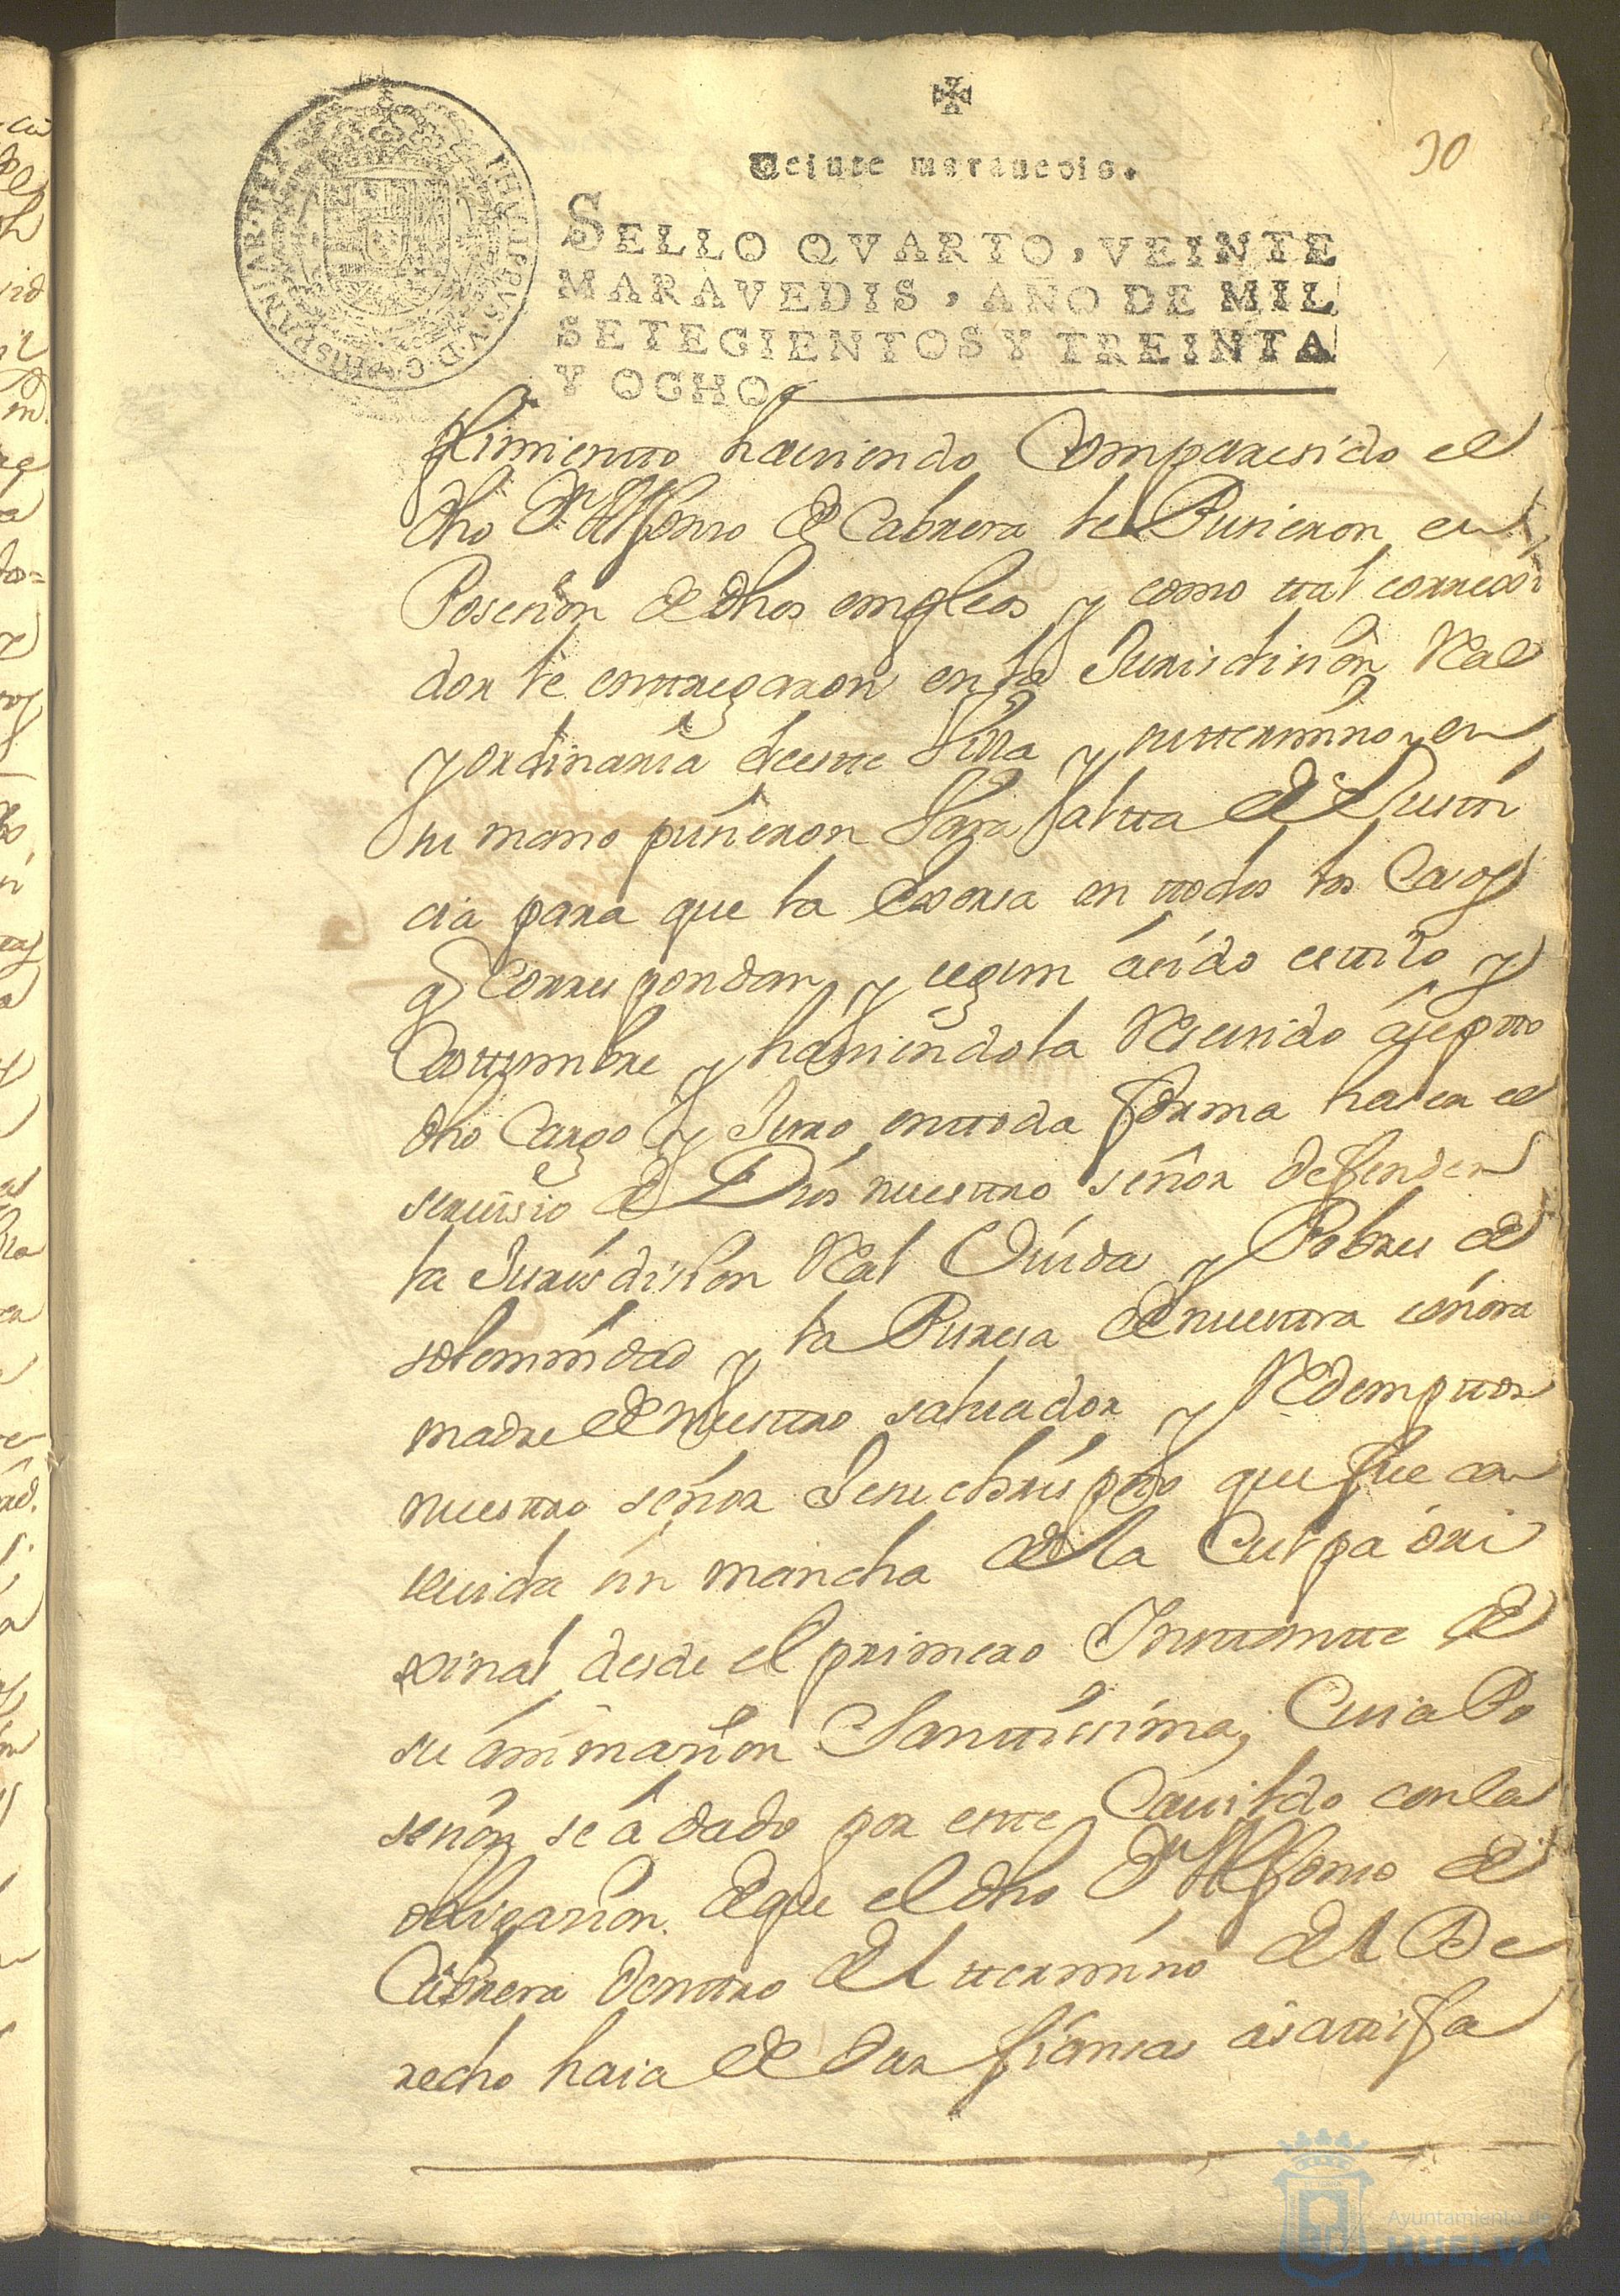 30
Veinte marauedis.
SELLO QVARTO, VEINTE
MARAVEDIS, AÑO DE MIL
SETECIENTOS Y TREINTA
Y OCHO.
PHILIPPUS·V·D·G·HISPANIAR·REX
plimientto hauiendo Comparesido el
dho Dn Alfonso de Cabrera le Pusieron en
Posesion de dhos empleos y como ttal correxi
dor le enttregaron en la Jurisdision Real
y ordinaria de estte Villa y su ttermino y en
su mano pusieron Vara altta de Justti
cia para que la exersa en ttodos los Casos
q Correspondan y segun á sido esttilo y
Costtumbre y hauiendola Reseuido áseptto
dho Cargo y Juro en ttoda forma haser el
seruisio de Dios nuesttro señor defender
la Jurisdision Real Viuda y Pobres de
solemnidad y la Puresa de nuesttra señora
madre de Nuesttro saluador y Redempttor
nuesttro señor Jesuchrispto que fue con
seuida sin mancha de la Culpa ori
xinal desde el primero Insttantte de
su ánimasion Santtissima, Cuia Po
sesion se á dado por estte Cauildo con la
obligasion de que el dho Dn Alfonso de
Cabrera denttro del ttermino del De
recho haia de dar fiansas á sattisfa
Ayuntamiento de
HUELVA